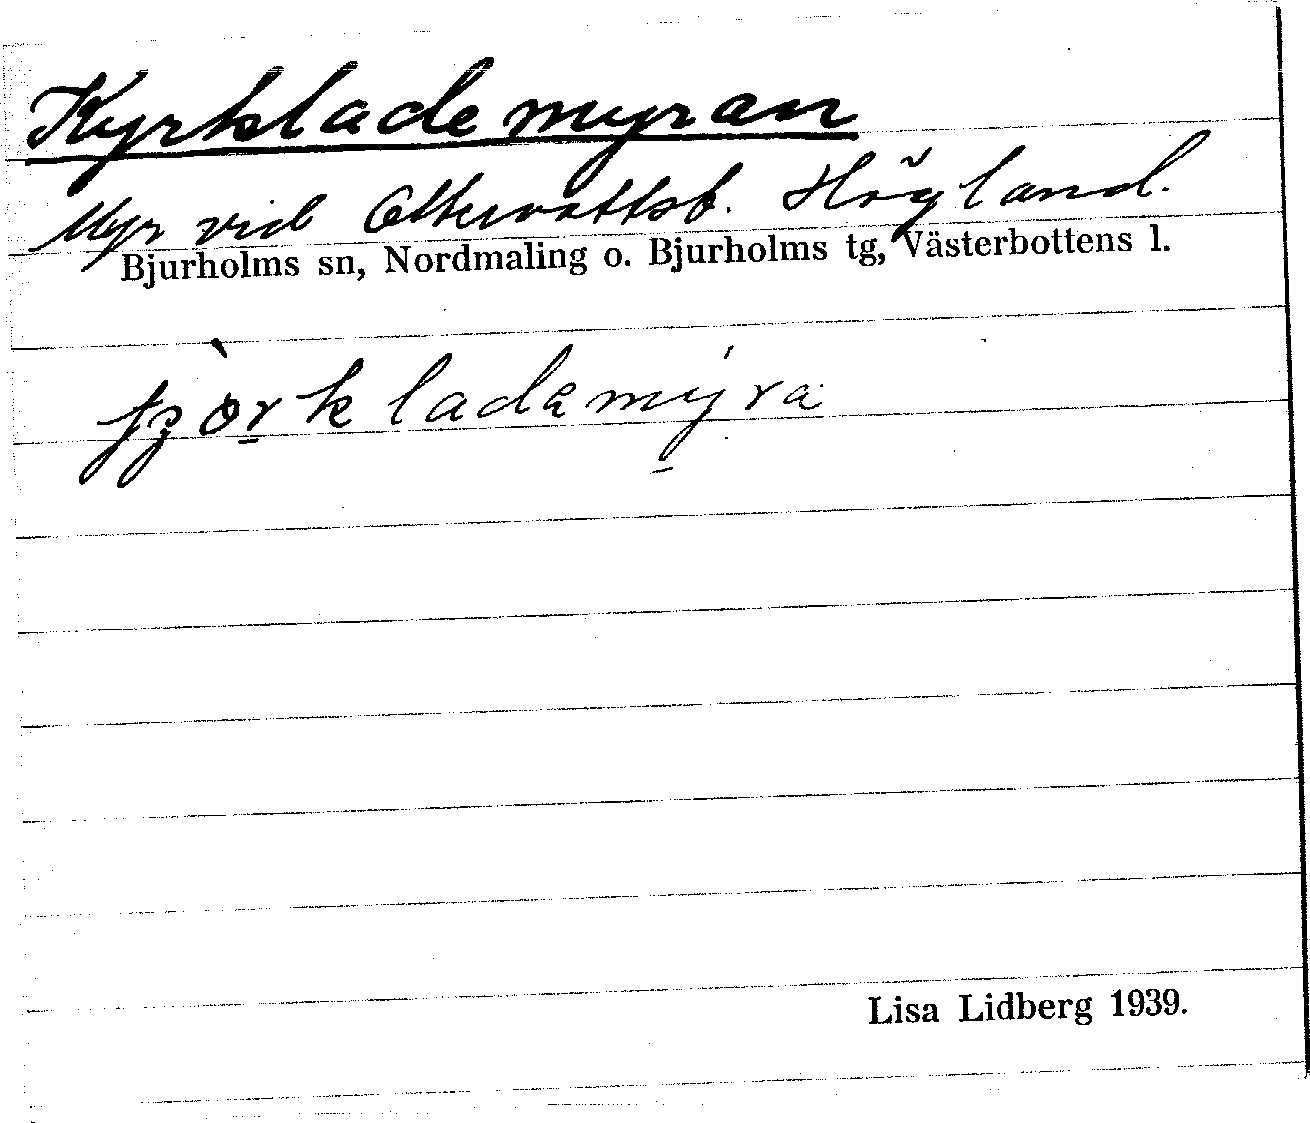 Kyrklademyran
Myr vid Högland.
Bjurholms sn, Nordmaling o. Bjurholms tg, Västerbottens l.
Lisa Lidberg 1939.